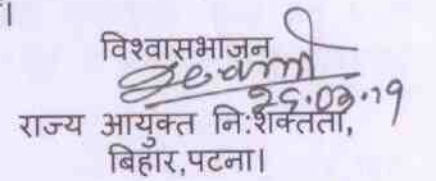 ।
विश्वासभाजन
राज्य आयुक्त निःशक्तता,
बिहार,पटना।